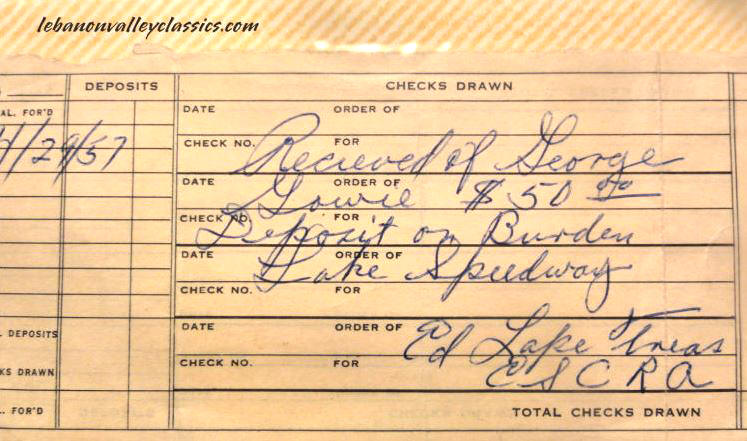 lebanonvalleyclassics.com
DEPOSITS CHECKS DRAWN
AL. FOR'D DATE ORDER OF
4/29/57 CHECK NO. FOR
Recieved of George
DATE ORDER OF
Gowie $50 00
CHECK NO. FOR
Deposit on Burden
DATE ORDER OF
Lake Speedway
CHECK NO. FOR
L DEPOSITS DATE ORDER OF
Ed Lape Treas
KS DRAWN CHECK NO. FOR
E S C R A
L. FOR'D TOTAL CHECKS DRAWN